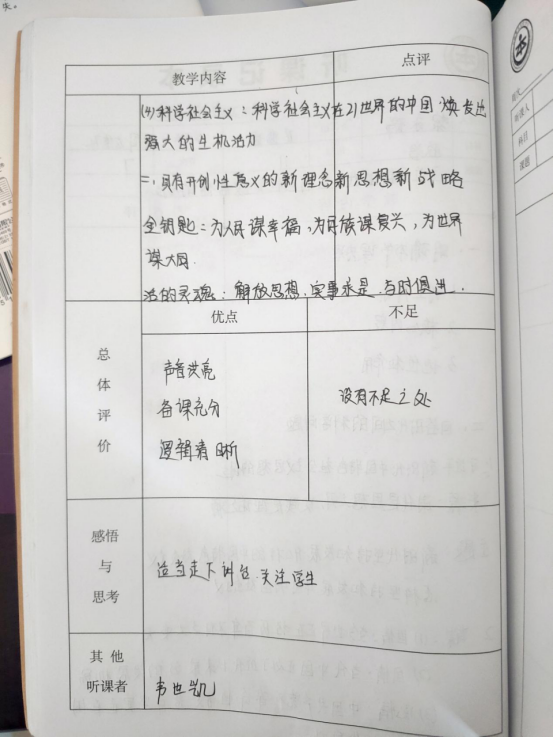 失。
教学内容
点评
(4)科学社会主义：科学社会主义在21世界的中国焕发出
强大的生机活力
二、具有开创性意义的新理念新思想新战略
金钥匙：为人民谋幸福，为民族谋复兴，为世界
谋大同.
活的灵魂：解放思想.实事求是.与时俱进.
总体评价
优点
不足
声音洪亮
备课充分
逻辑清晰
没有不足之处
感悟与思考
适当走下讲台.关注学生
其他听课者
韦世凯
听课人
科目
课题